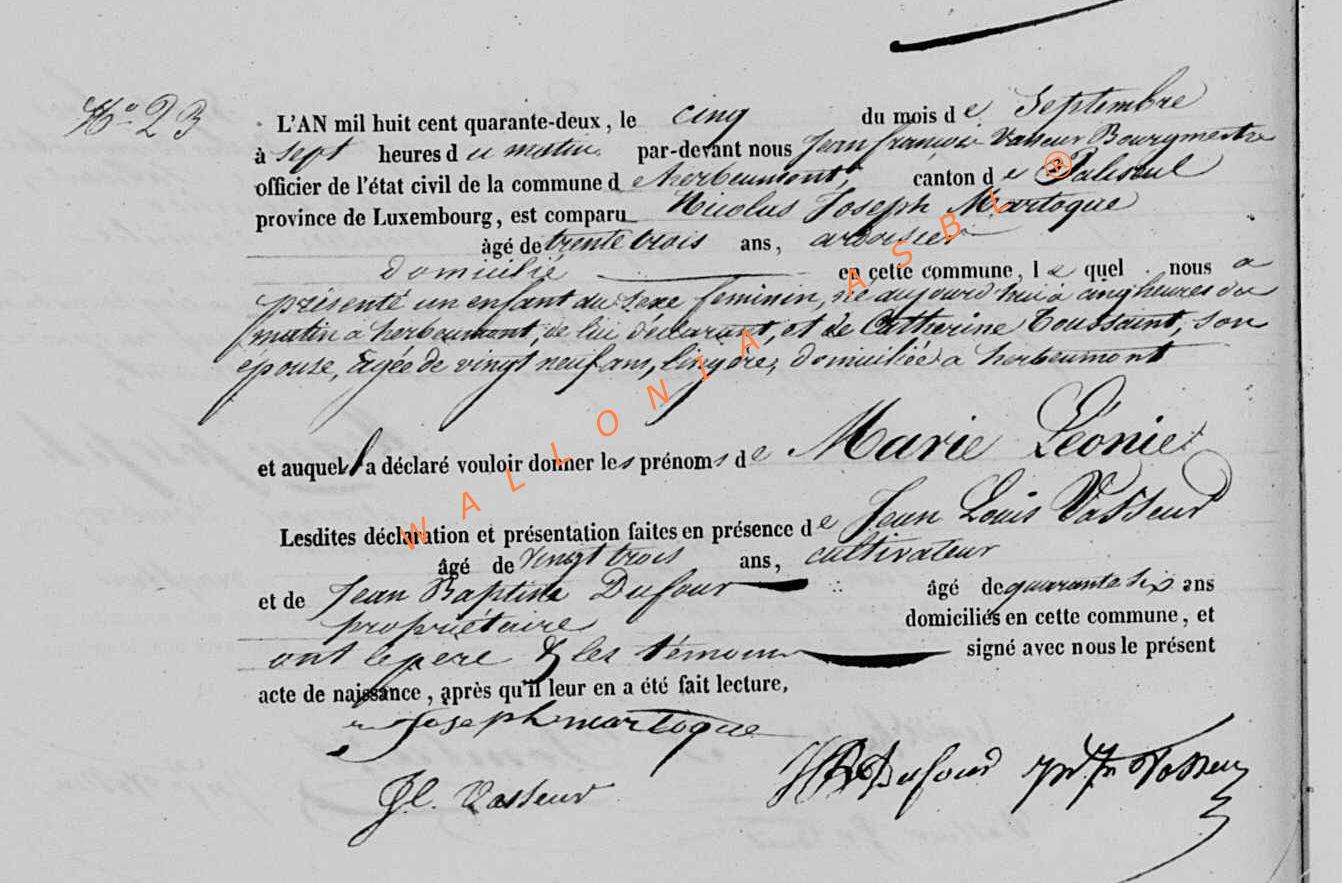 N° 23
L'AN mil huit cent quarante-deux, le cinq du mois de Septembre
à sept heures du matin par-devant nous Jean françois Vasseur Bourgmestre
officier de l'état civil de la commune de herbeumont, canton de Paliseul
province de Luxembourg, est comparu Nicolas Joseph Martoque
âgé de trente trois ans, ardoisier
domicilié en cette commune, le quel nous a
présenté un enfant du sexe feminin, né aujourd'hui à cinq heures du
matin a herbeumont, de lui déclarant, et de Catherine Toussaint, son
épouse, agée de vingt neuf ans, lingère, domiciliée a herbeumont
et auquel il a déclaré vouloir donner les prénoms de Marie Léonie
Lesdites déclaration et présentation faites en présence de Jean Louis Vasseur
âgé de vingt trois ans, cultivateur
et de Jean Baptiste Dufour âgé de quarante six ans
propriétaire domiciliés en cette commune, et
ont le père & les témoins signé avec nous le présent
acte de naissance, après qu'il leur en a été fait lecture,
Joseph martoque
Jl. Vasseur
Dufour Vasseur
WALLONIA ASBL ®